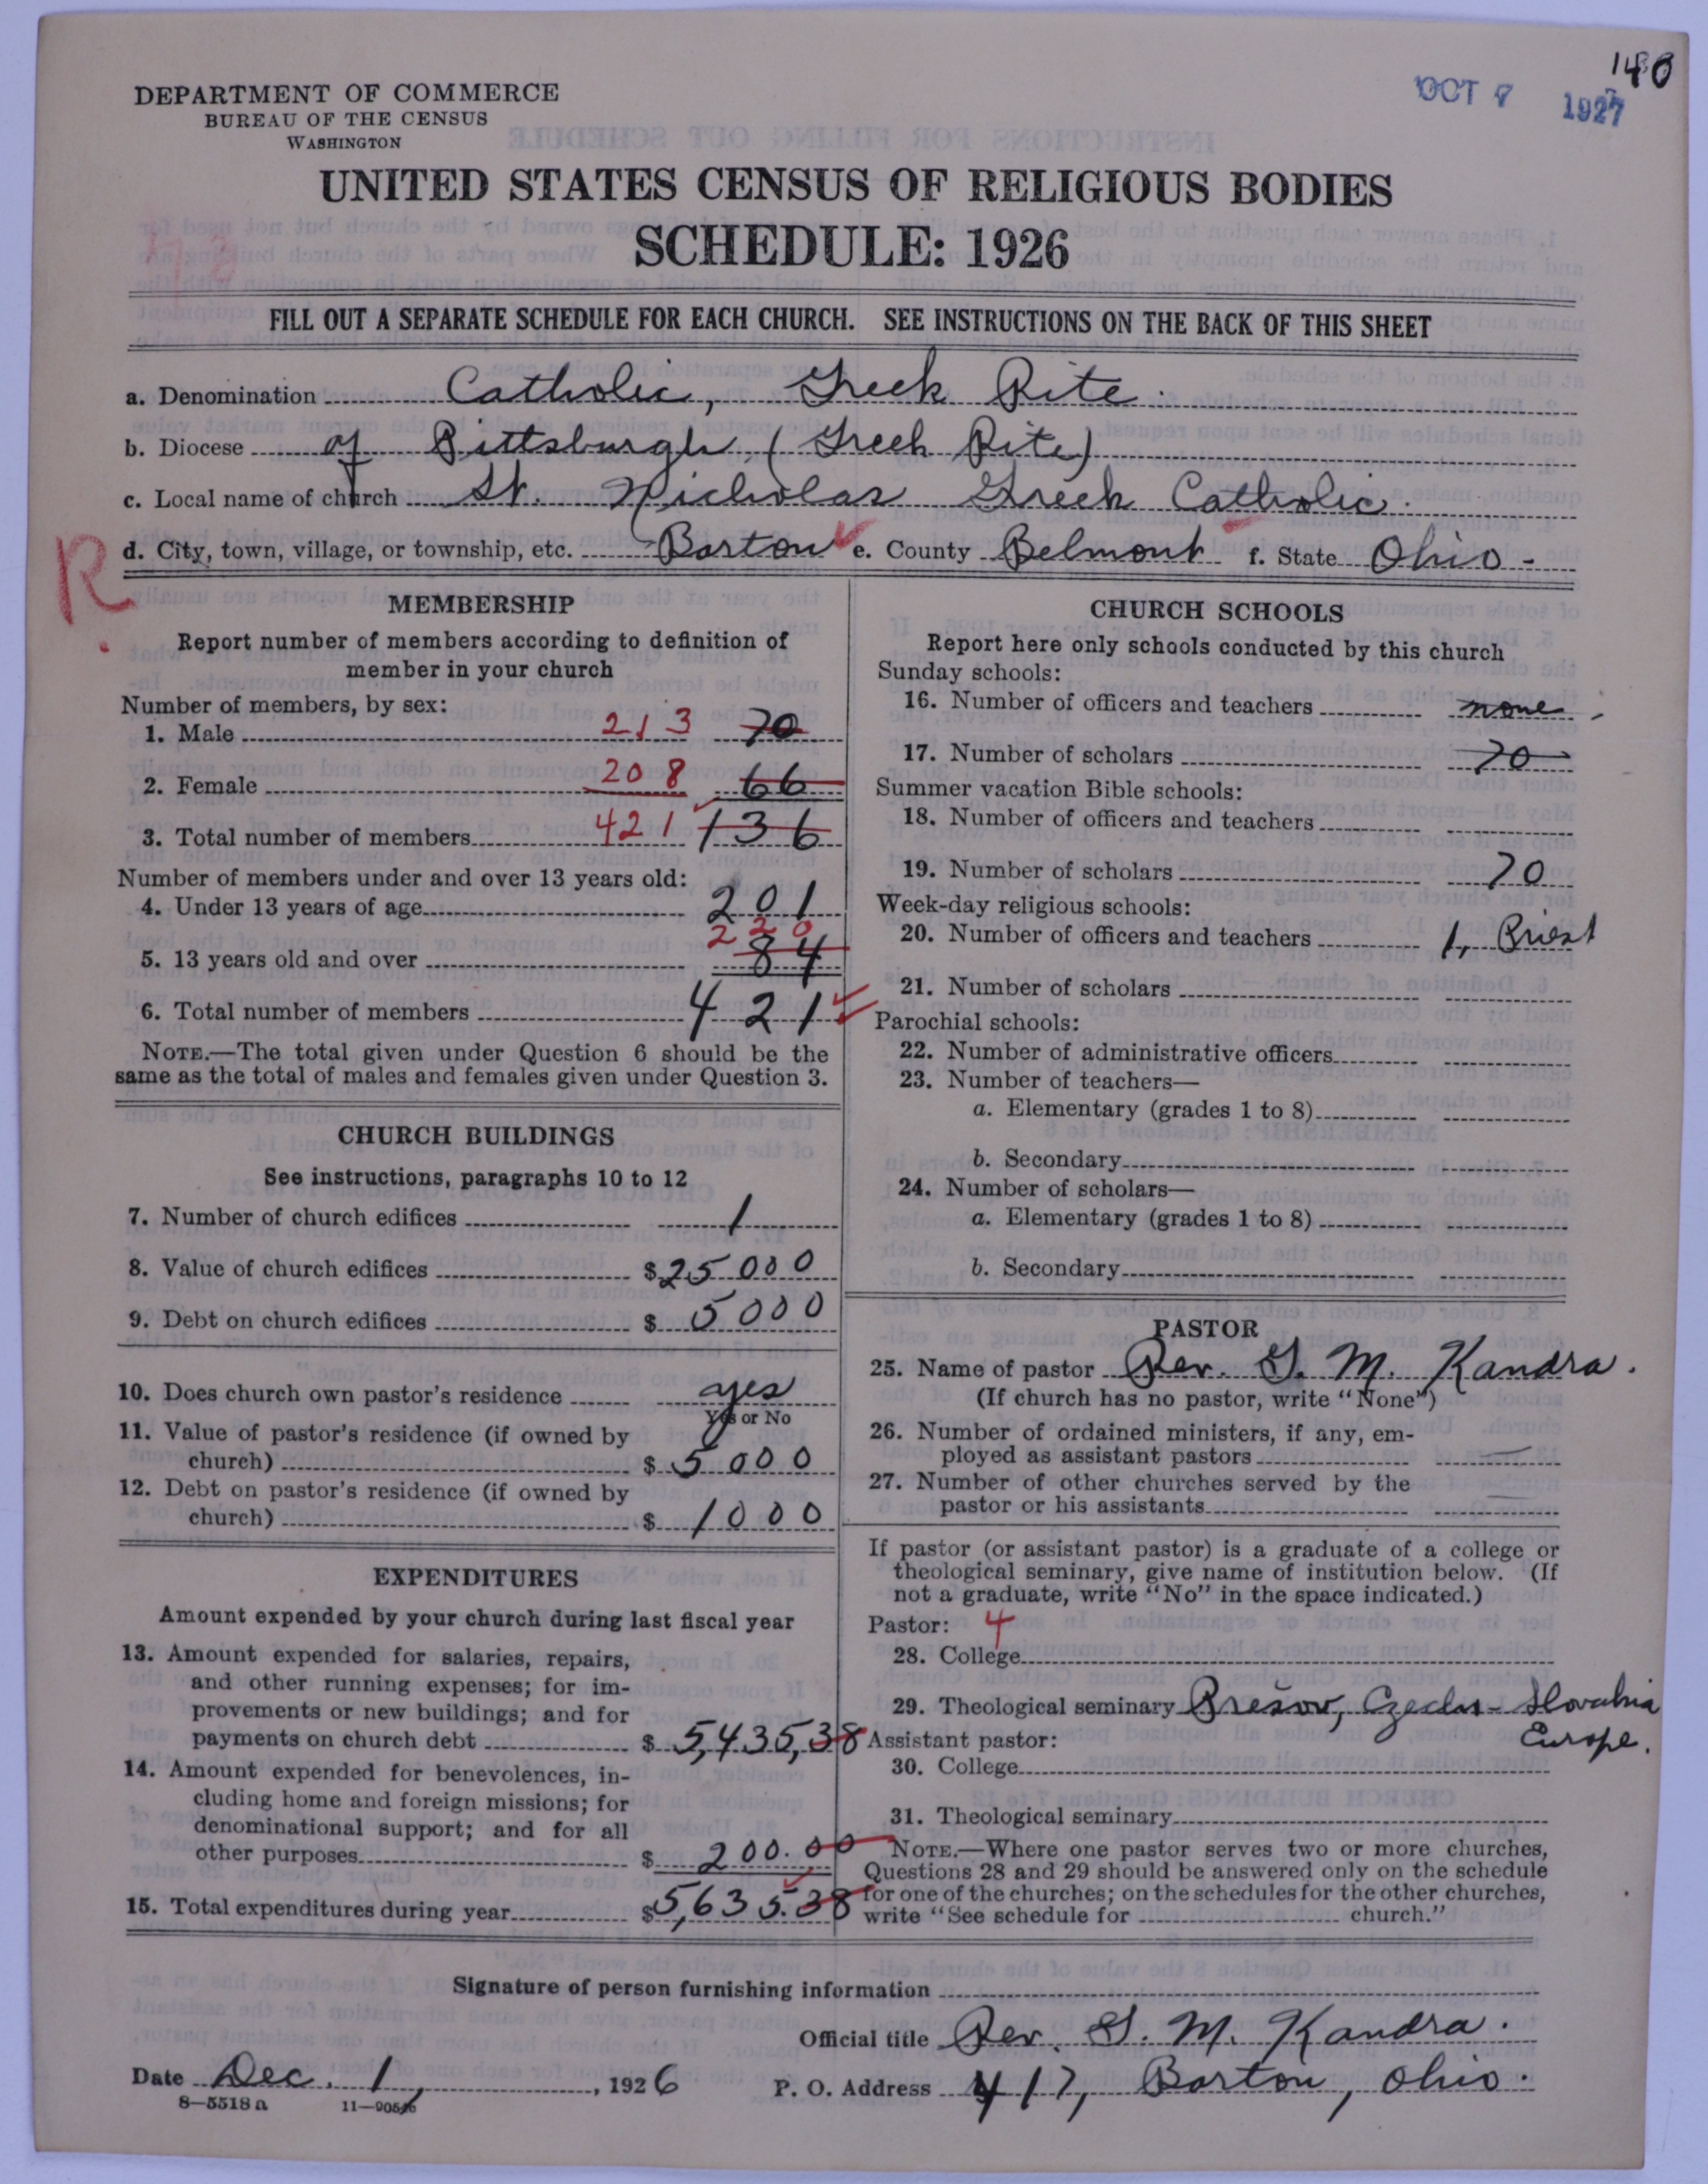 140
OCT 7 1927
DEPARTMENT OF COMMERCE
BUREAU OF THE CENSUS
WASHINGTON
UNITED STATES CENSUS OF RELIGIOUS BODIES
SCHEDULE: 1926
FILL OUT A SEPARATE SCHEDULE FOR EACH CHURCH. SEE INSTRUCTIONS ON THE BACK OF THIS SHEET
a. Denomination Catholic, Greek Rite.
b. Diocese of Pittsburgh (Greek Rite)
c. Local name of church St. Nicholas Greek Catholic.
d. City, town, village, or township, etc. Barton e. County Belmont f. State Ohio -
R.
MEMBERSHIP
Report number of members according to definition of
member in your church
Number of members, by sex:
1. Male 213 70
2. Female 208 66
3. Total number of members 421 136
Number of members under and over 13 years old:
4. Under 13 years of age 201
220
5. 13 years old and over 84
6. Total number of members 421
NOTE.—The total given under Question 6 should be the
same as the total of males and females given under Question 3.
CHURCH BUILDINGS
See instructions, paragraphs 10 to 12
7. Number of church edifices 1
8. Value of church edifices $ 25000
9. Debt on church edifices $ 5000
10. Does church own pastor's residence yes
Yes or No
11. Value of pastor's residence (if owned by
church) $ 5000
12. Debt on pastor's residence (if owned by
church) $ 1000
EXPENDITURES
Amount expended by your church during last fiscal year
13. Amount expended for salaries, repairs,
and other running expenses; for im-
provements or new buildings; and for
payments on church debt $ 5,435,38
14. Amount expended for benevolences, in-
cluding home and foreign missions; for
denominational support; and for all
other purposes $ 200.00
15. Total expenditures during year $ 5,635.38
CHURCH SCHOOLS
Report here only schools conducted by this church
Sunday schools:
16. Number of officers and teachers none
17. Number of scholars 70
Summer vacation Bible schools:
18. Number of officers and teachers
19. Number of scholars 70
Week-day religious schools:
20. Number of officers and teachers 1, Priest
21. Number of scholars
Parochial schools:
22. Number of administrative officers
23. Number of teachers—
a. Elementary (grades 1 to 8)
b. Secondary
24. Number of scholars—
a. Elementary (grades 1 to 8)
b. Secondary
PASTOR
25. Name of pastor Rev. G. M. Kandra.
(If church has no pastor, write "None")
26. Number of ordained ministers, if any, em-
ployed as assistant pastors —
27. Number of other churches served by the
pastor or his assistants
If pastor (or assistant pastor) is a graduate of a college or
theological seminary, give name of institution below. (If
not a graduate, write "No" in the space indicated.)
Pastor: 4
28. College
29. Theological seminary Prešov, Czecho-Slovakia
Europe.
Assistant pastor:
30. College
31. Theological seminary
NOTE.—Where one pastor serves two or more churches,
Questions 28 and 29 should be answered only on the schedule
for one of the churches; on the schedules for the other churches,
write "See schedule for church."
Signature of person furnishing information
Official title Rev. G. M. Kandra.
Date Dec. 1, 1926 P. O. Address 417, Barton, Ohio.
8—5518a 11—9056